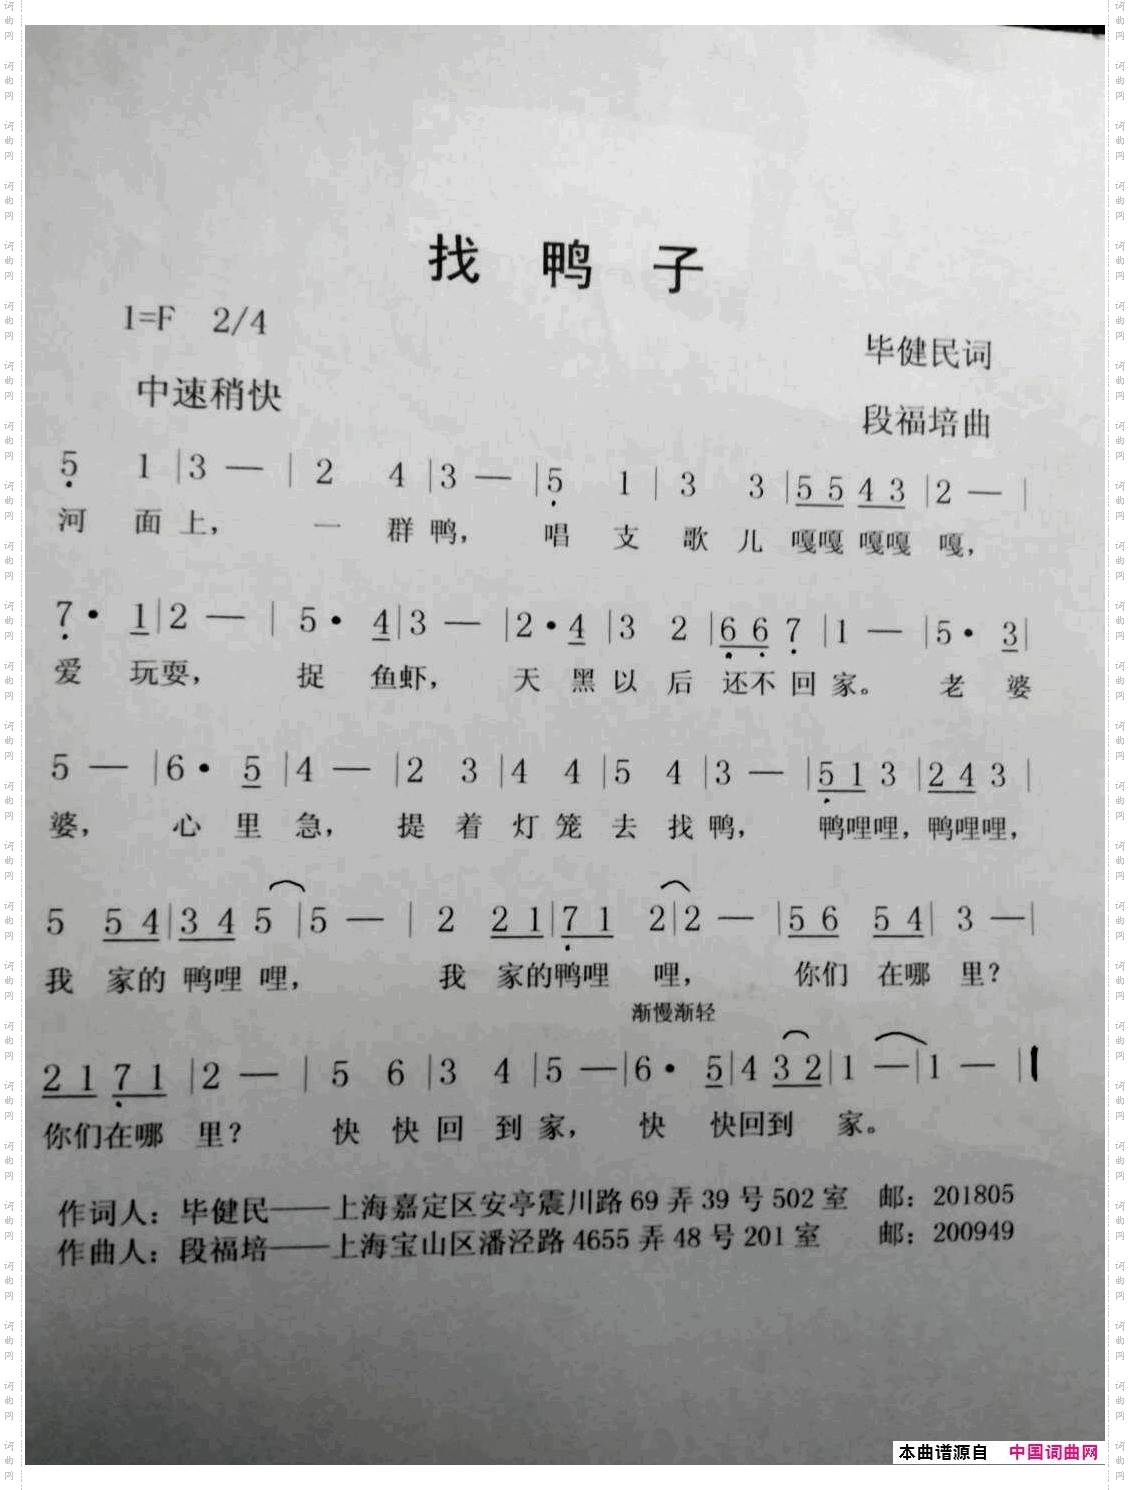 找 鸭 子
1=F 2/4
毕健民词
中速稍快
段福培曲
5̣ 1 | 3 — | 2 4 | 3 — | 5̣ 1 | 3 3 | 5 5 4 3 | 2 — |
河 面 上， 一 群 鸭， 唱 支 歌 儿 嘎嘎 嘎嘎 嘎，
7̣· 1 | 2 — | 5· 4 | 3 — | 2· 4 | 3 2 | 6̣ 6̣ 7̣ | 1 — | 5· 3 |
爱 玩耍， 捉 鱼虾， 天 黑 以 后 还不 回 家。 老 婆
5 — | 6· 5 | 4 — | 2 3 | 4 4 | 5 4 | 3 — | 5̣ 1 3 | 2 4 3 |
婆， 心 里 急， 提 着 灯 笼 去 找 鸭， 鸭哩哩，鸭哩哩，
5 5 4 | 3 4 5 | 5 — | 2 2 1 | 7̣ 1 2 | 2 — | 5 6 5 4 | 3 — |
我 家的 鸭哩 哩， 我 家的鸭哩 哩， 你们 在哪 里？
渐慢渐轻
2 1 7̣ 1 | 2 — | 5 6 | 3 4 | 5 — | 6· 5 | 4 3 2 | 1 — | 1 — ‖
你们在哪 里？ 快 快 回 到 家， 快 快回到 家。
作词人：毕健民——上海嘉定区安亭震川路 69 弄 39 号 502 室 邮：201805
作曲人：段福培——上海宝山区潘泾路 4655 弄 48 号 201 室 邮：200949
本曲谱源自 中国词曲网